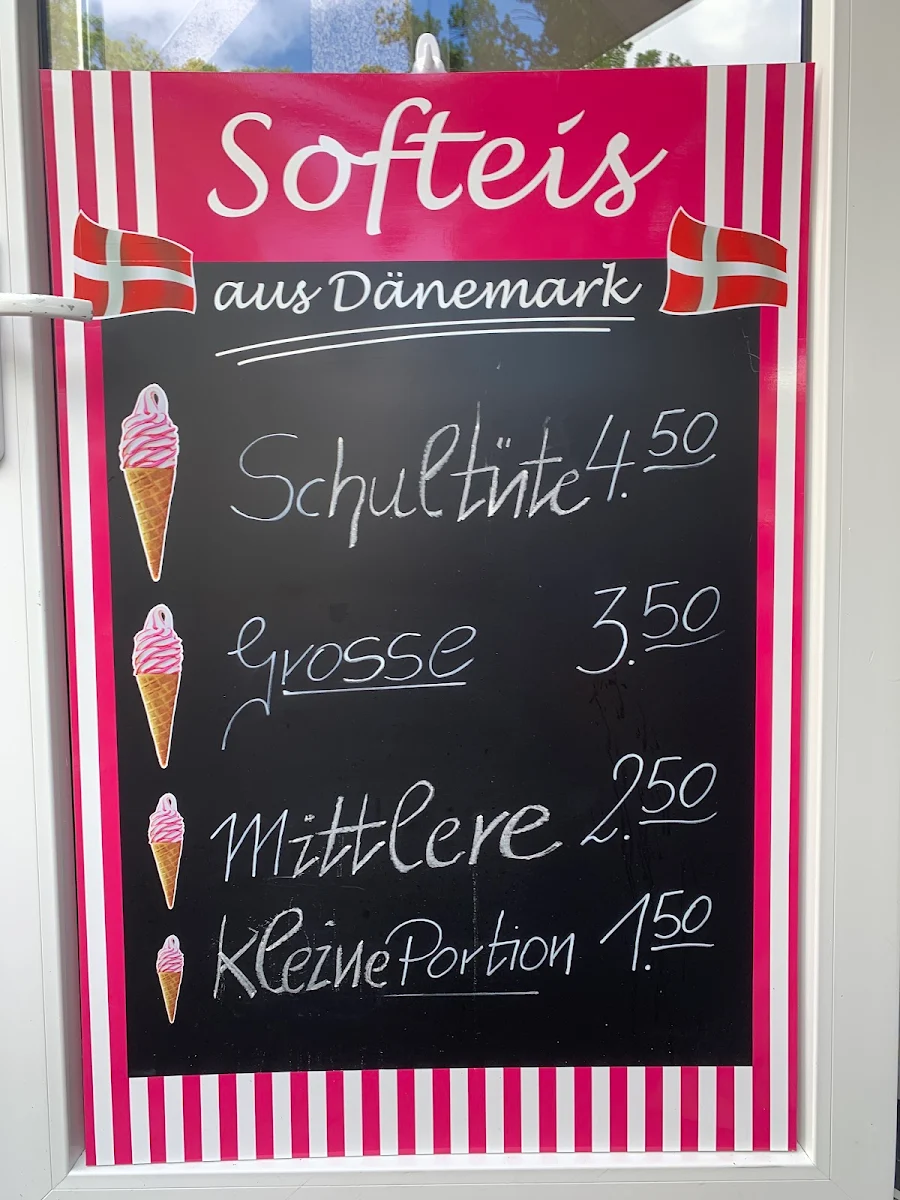 Softeis
aus Dänemark
Schultüte 4.50
Grosse 3.50
Mittlere 2.50
Kleine Portion 1.50